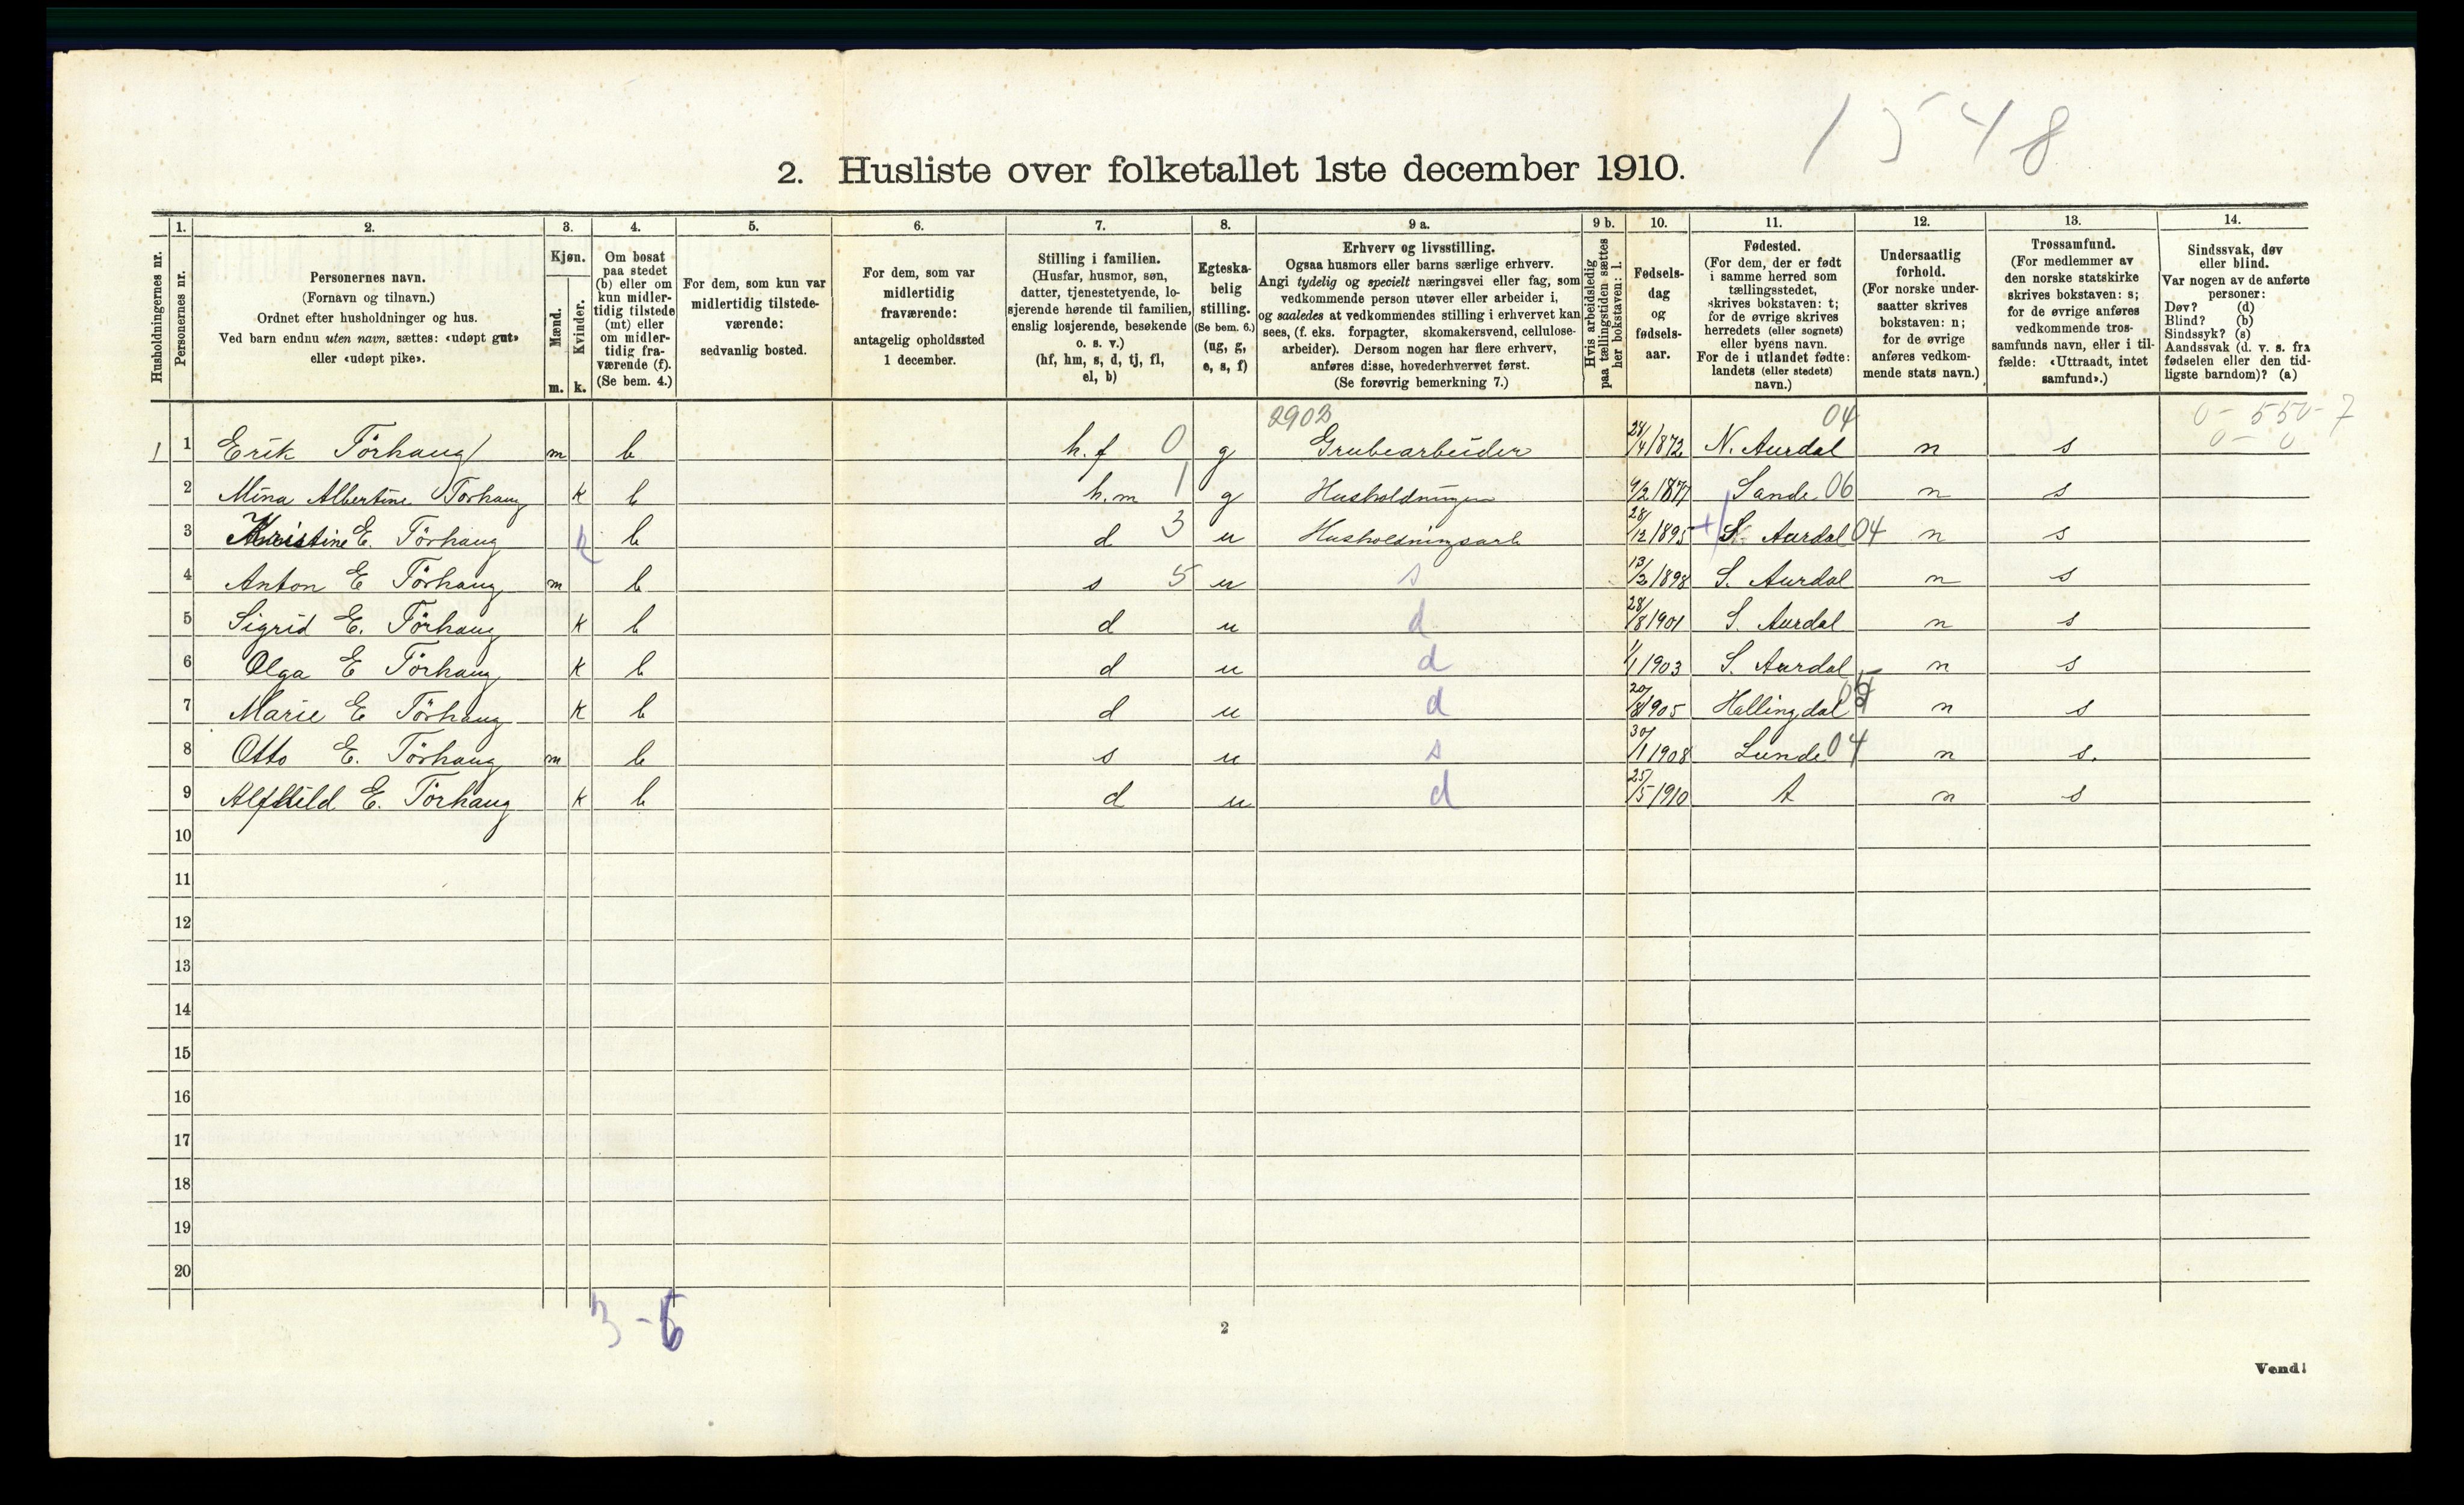 1548
2. Husliste over folketallet 1ste december 1910.
Husholdningernes nr.
1.
Personernes nr.
2.
Personernes navn.
(Fornavn og tilnavn.)
Ordnet efter husholdninger og hus.
Ved barn endnu uten navn, sættes: «udøpt gut»
eller «udøpt pike».
3.
Kjøn.
Mænd.
Kvinder.
m. k.
4.
Om bosat
paa stedet
(b) eller om
kun midler-
tidig tilstede
(mt) eller
om midler-
tidig fra-
værende (f).
(Se bem. 4.)
5.
For dem, som kun var
midlertidig tilstede-
værende:
sedvanlig bosted.
6.
For dem, som var
midlertidig
fraværende:
antagelig opholdssted
1 december.
7.
Stilling i familien.
(Husfar, husmor, søn,
datter, tjenestetyende, lo-
sjerende hørende til familien,
enslig losjerende, besøkende
o. s. v.)
(hf, hm, s, d, tj, fl,
el, b)
8.
Egteska-
belig
stilling.
(Se bem. 6.)
(ug, g,
e, s, f)
9 a.
Erhverv og livsstilling.
Ogsaa husmors eller barns særlige erhverv.
Angi tydelig og specielt næringsvei eller fag, som
vedkommende person utøver eller arbeider i,
og saaledes at vedkommendes stilling i erhvervet kan
sees, (f. eks. forpagter, skomakersvend, cellulose-
arbeider). Dersom nogen har flere erhverv,
anføres disse, hovederhvervet først.
(Se forøvrig bemerkning 7.)
9 b.
Hvis arbeidsledig
paa tællingstiden sættes
her bokstaven: l.
10.
Fødsels-
dag
og
fødsels-
aar.
11.
Fødested.
(For dem, der er født
i samme herred som
tællingsstedet,
skrives bokstaven: t;
for de øvrige skrives
herredets (eller sognets)
eller byens navn.
For de i utlandet fødte:
landets (eller stedets)
navn.)
12.
Undersaatlig
forhold.
(For norske under-
saatter skrives
bokstaven: n;
for de øvrige
anføres vedkom-
mende stats navn.)
13.
Trossamfund.
(For medlemmer av
den norske statskirke
skrives bokstaven: s;
for de øvrige anføres
vedkommende tros-
samfunds navn, eller i til-
fælde: «Uttraadt, intet
samfund».)
14.
Sindssvak, døv
eller blind.
Var nogen av de anførte
personer:
Døv? (d)
Blind? (b)
Sindssyk? (s)
Aandssvak (d. v. s. fra
fødselen eller den tid-
ligste barndom)? (a)
2903 04 0 - 550 - 7
1 1 Erik Törhaug m b h.f 0 g Grubearbeider 28/4 1872 N. Aurdal n s 0 - 0
2 Mina Albertine Törhaug k b h.m 1 g Husholdningen 9/2 1877 Sande 06 n s
3 Kristine E. Törhaug k b d 3 u Husholdningsarb 28/12 1895 S. Aurdal 04 n s
4 Anton E Törhaug m b s 5 u s 13/2 1898 S. Aurdal n s
5 Sigrid E. Törhaug k b d u d 28/8 1901 S. Aurdal n s
6 Olga E Törhaug k b d u d 1/1 1903 S. Aurdal n s
7 Marie E Törhaug k b d u d 20/8 1905 Hallingdal n s
8 Otto E. Törhaug m b s u s 30/1 1908 Lunde 04 n s.
9 Alfhild E. Törhaug k b d u d 25/5 1910 t n s
10
11
12
13
14
15
16
17
18
19
20
3-6
2
Vend!